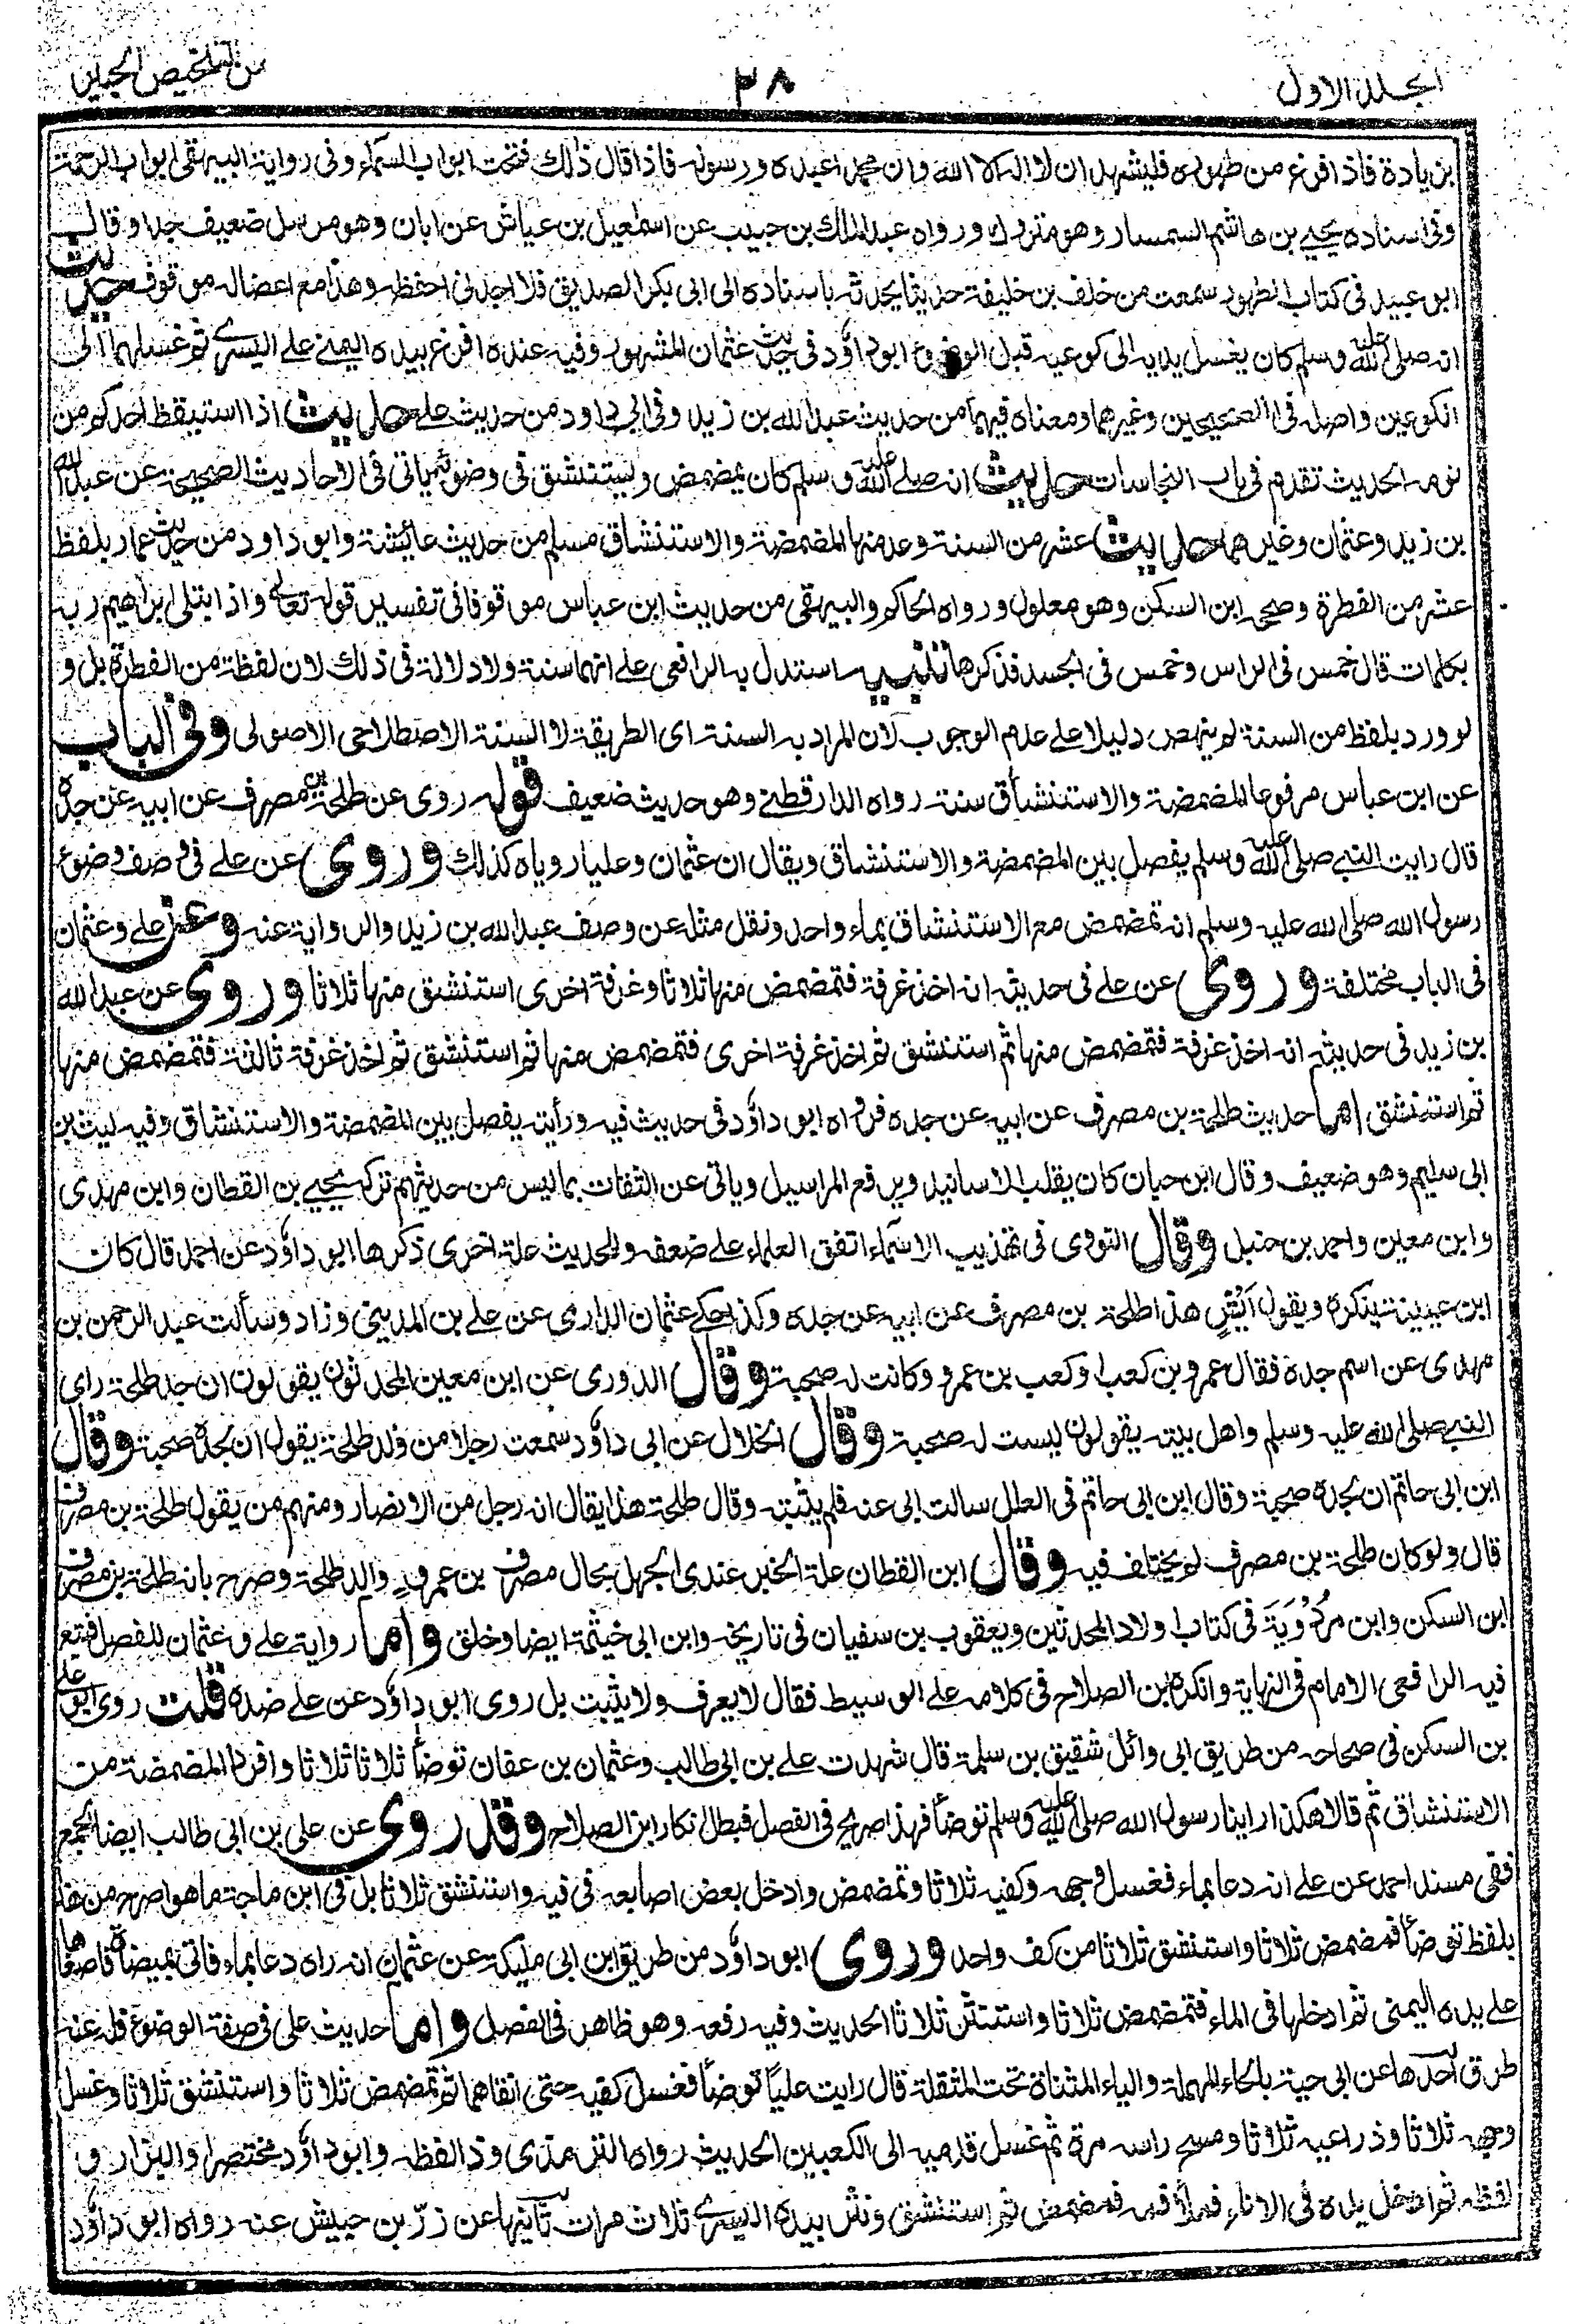 الجلد الاول
٢٨
من تلخيص الحبير
بزيادة فاذا فرغ من طهوره فليشهد ان لا اله الا الله وان محمدا عبده ورسوله فاذا قال ذلك فتحت ابواب السماء وفي رواية البيهقي ابواب الرحمة
وفي اسناده يحيى بن هاشم السمسار وهو متروك ورواه عبد الملك بن حبيب عن اسمعيل بن عياش عن ابان وهو مرسل ضعيف جدا وقال
ابو عبيد في كتاب الطهور سمعت من خلف بن خليفة حديثا يحدثه باسناده الى ابي بكر الصديق فلا اجدني احفظه وهذا مع اعضاله موقوف حديث
انه صلى الله عليه وسلم كان يغسل يديه الى كوعيه قبل الوضوء ابو داؤد في حديث عثمان المشهور وفيه عنده افرغ بيده اليمنى على اليسرى ثم غسلهما الى
الكوعين واصله في الصحيحين وغيرهما ومعناه فيهما من حديث عبد الله بن زيد وفي ابي داود من حديث علي حديث اذا استيقظ احدكم من
نومه الحديث تقدم في باب النجاسات حديث انه صلى الله عليه وسلم كان يمضمض ويستنشق في وضوئه ياتي في الاحاديث الصحيحة عن عبد الله
بن زيد وعثمان وغيرهما حديث عشر من السنة وعد منها المضمضة والاستنشاق مسلم من حديث عائشة وابو داود من حديث عمار بلفظ
عشر من الفطرة وصححه ابن السكن وهو معلول ورواه الحاكم والبيهقي من حديث ابن عباس موقوفا في تفسير قوله تعالى واذ ابتلى ابراهيم ربه
بكلمات قال خمس في الراس وخمس في الجسد فذكرها تنبيه استدل به الرافعي على انهما سنة ولا دلالة في ذلك لان لفظة من الفطرة بل و
لو ورد بلفظ من السنة لم ينهض دليلا على عدم الوجوب لان المراد به السنة اي الطريقة لا السنة الاصطلاحي الاصولي وفي الباب
عن ابن عباس مرفوعا المضمضة والاستنشاق سنة رواه الدارقطني وهو حديث ضعيف قوله روى عن طلحة بن مصرف عن ابيه عن جده
قال رايت النبي صلى الله عليه وسلم يفصل بين المضمضة والاستنشاق ويقال ان عثمان وعليا روياه كذلك وروى عن علي في وصف وضوء
رسول الله صلى الله عليه وسلم انه تمضمض مع الاستنشاق بماء واحد ونقل مثله عن وصف عبد الله بن زيد والرواية عنه وعن علي وعثمان
في الباب مختلفة وروى عن علي في حديثه انه اخذ غرفة فتمضمض منها ثلاثا وغرفة اخرى استنشق منها ثلاثا وروى عن عبد الله
بن زيد في حديثه انه اخذ غرفة فتمضمض منها ثم استنشق ثم اخذ غرفة اخرى فتمضمض منها ثم استنشق ثم اخذ غرفة ثالثة فتمضمض منها
ثم استنشق اما حديث طلحة بن مصرف عن ابيه عن جده فرواه ابو داؤد في حديث فيه ورأيته يفصل بين المضمضة والاستنشاق وفيه ليث بن
ابي سليم وهو ضعيف وقال ابن حبان كان يقلب الاسانيد ويرفع المراسيل وياتي عن الثقات بما ليس من حديثهم تركه يحيى بن القطان وابن مهدي
وابن معين واحمد بن حنبل وقال النووي في تهذيب الاسماء اتفق العلماء على ضعفه وللحديث علة اخرى ذكرها ابو داؤد عن احمد قال كان
ابن عيينة ينكره ويقول ايش هذا طلحة بن مصرف عن ابيه عن جده وكذا حكى عثمان الدارمي عن علي بن المديني وزاد وسألت عبد الرحمن بن
مهدي عن اسم جده فقال عمرو بن كعب او كعب بن عمرو وكانت له صحبة وقال الدوري عن ابن معين المحدثون يقولون ان جد طلحة راى
النبي صلى الله عليه وسلم واهل بيته يقولون ليست له صحبة وقال الخلال عن ابي داؤد سمعت رجلا من ولد طلحة يقول ان لجده صحبة وقال
ابن ابي حاتم ان لجده صحبة وقال ابن ابي حاتم في العلل سالت ابي عنه فلم يثبته وقال طلحة هذا يقال انه رجل من الانصار ومنهم من يقول طلحة بن مصرف
قال ولو كان طلحة بن مصرف لم يختلف فيه وقال ابن القطان علة الخبر عندي الجهل بحال مصرف بن عمرو والد طلحة وصرح بانه طلحة بن مصرف
ابن السكن وابن مردويه في كتاب اولاد المحدثين ويعقوب بن سفيان في تاريخه وابن ابي خيثمة ايضا وخلق واما رواية علي وعثمان للفصل فتبع
فيه الرافعي الامام في النهاية وانكره ابن الصلاح في كلامه على الوسيط فقال لا يعرف ولا يثبت بل روى ابو داؤد عن علي ضده قلت روى ابو علي
بن السكن في صحاحه من طريق ابي وائل شقيق بن سلمة قال شهدت علي بن ابي طالب وعثمان بن عفان توضأ ثلاثا ثلاثا وافردا المضمضة من
الاستنشاق ثم قالا هكذا راينا رسول الله صلى الله عليه وسلم توضأ فهذا صريح في الفصل فبطل انكار ابن الصلاح وقد روى عن علي بن ابي طالب ايضا الجمع
ففي مسند احمد عن علي انه دعا بماء فغسل وجهه وكفيه ثلاثا وتمضمض وادخل بعض اصابعه في فيه واستنشق ثلاثا بل في ابن ماجة ما هو اصرح من هذا
بلفظ توضأ فمضمض ثلاثا واستنشق ثلاثا من كف واحد وروى ابو داؤد من طريق ابن ابي مليكة عن عثمان انه راه دعا بماء فاتى بميضاة فاصغاها
على يده اليمنى ثم ادخلها في الماء فتمضمض ثلاثا واستنثر ثلاثا الحديث وفيه رفعه وهو ظاهر في الفصل واما حديث علي في صفة الوضوء فله عنه
طرق احدها عن ابي حية بالحاء المهملة والياء المثناة تحت المثقلة قال رايت عليا توضأ فغسل كفيه حتى انقاهما ثم تمضمض ثلاثا واستنشق ثلاثا وغسل
وجهه ثلاثا وذراعيه ثلاثا ومسح راسه مرة ثم غسل قدميه الى الكعبين الحديث رواه الترمذي وذا لفظه وابو داؤد مختصرا والبزار و
لفظه ثم ادخل يده في الاناء فملأ فمه فمضمض ثم استنشق ونثر بيده اليسرى ثلاث مرات ثانيها عن زر بن حبيش عنه رواه ابو داؤد